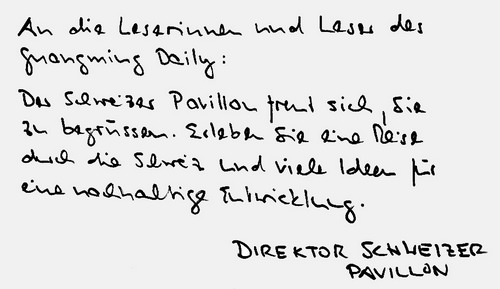 An die Leserinnen und Leser des
Guangming Daily:
Der Schweizer Pavillon freut sich, Sie
zu begrüssen. Erleben Sie eine Reise
durch die Schweiz und viele Ideen für
eine nachhaltige Entwicklung.
DIREKTOR SCHWEIZER
PAVILLON